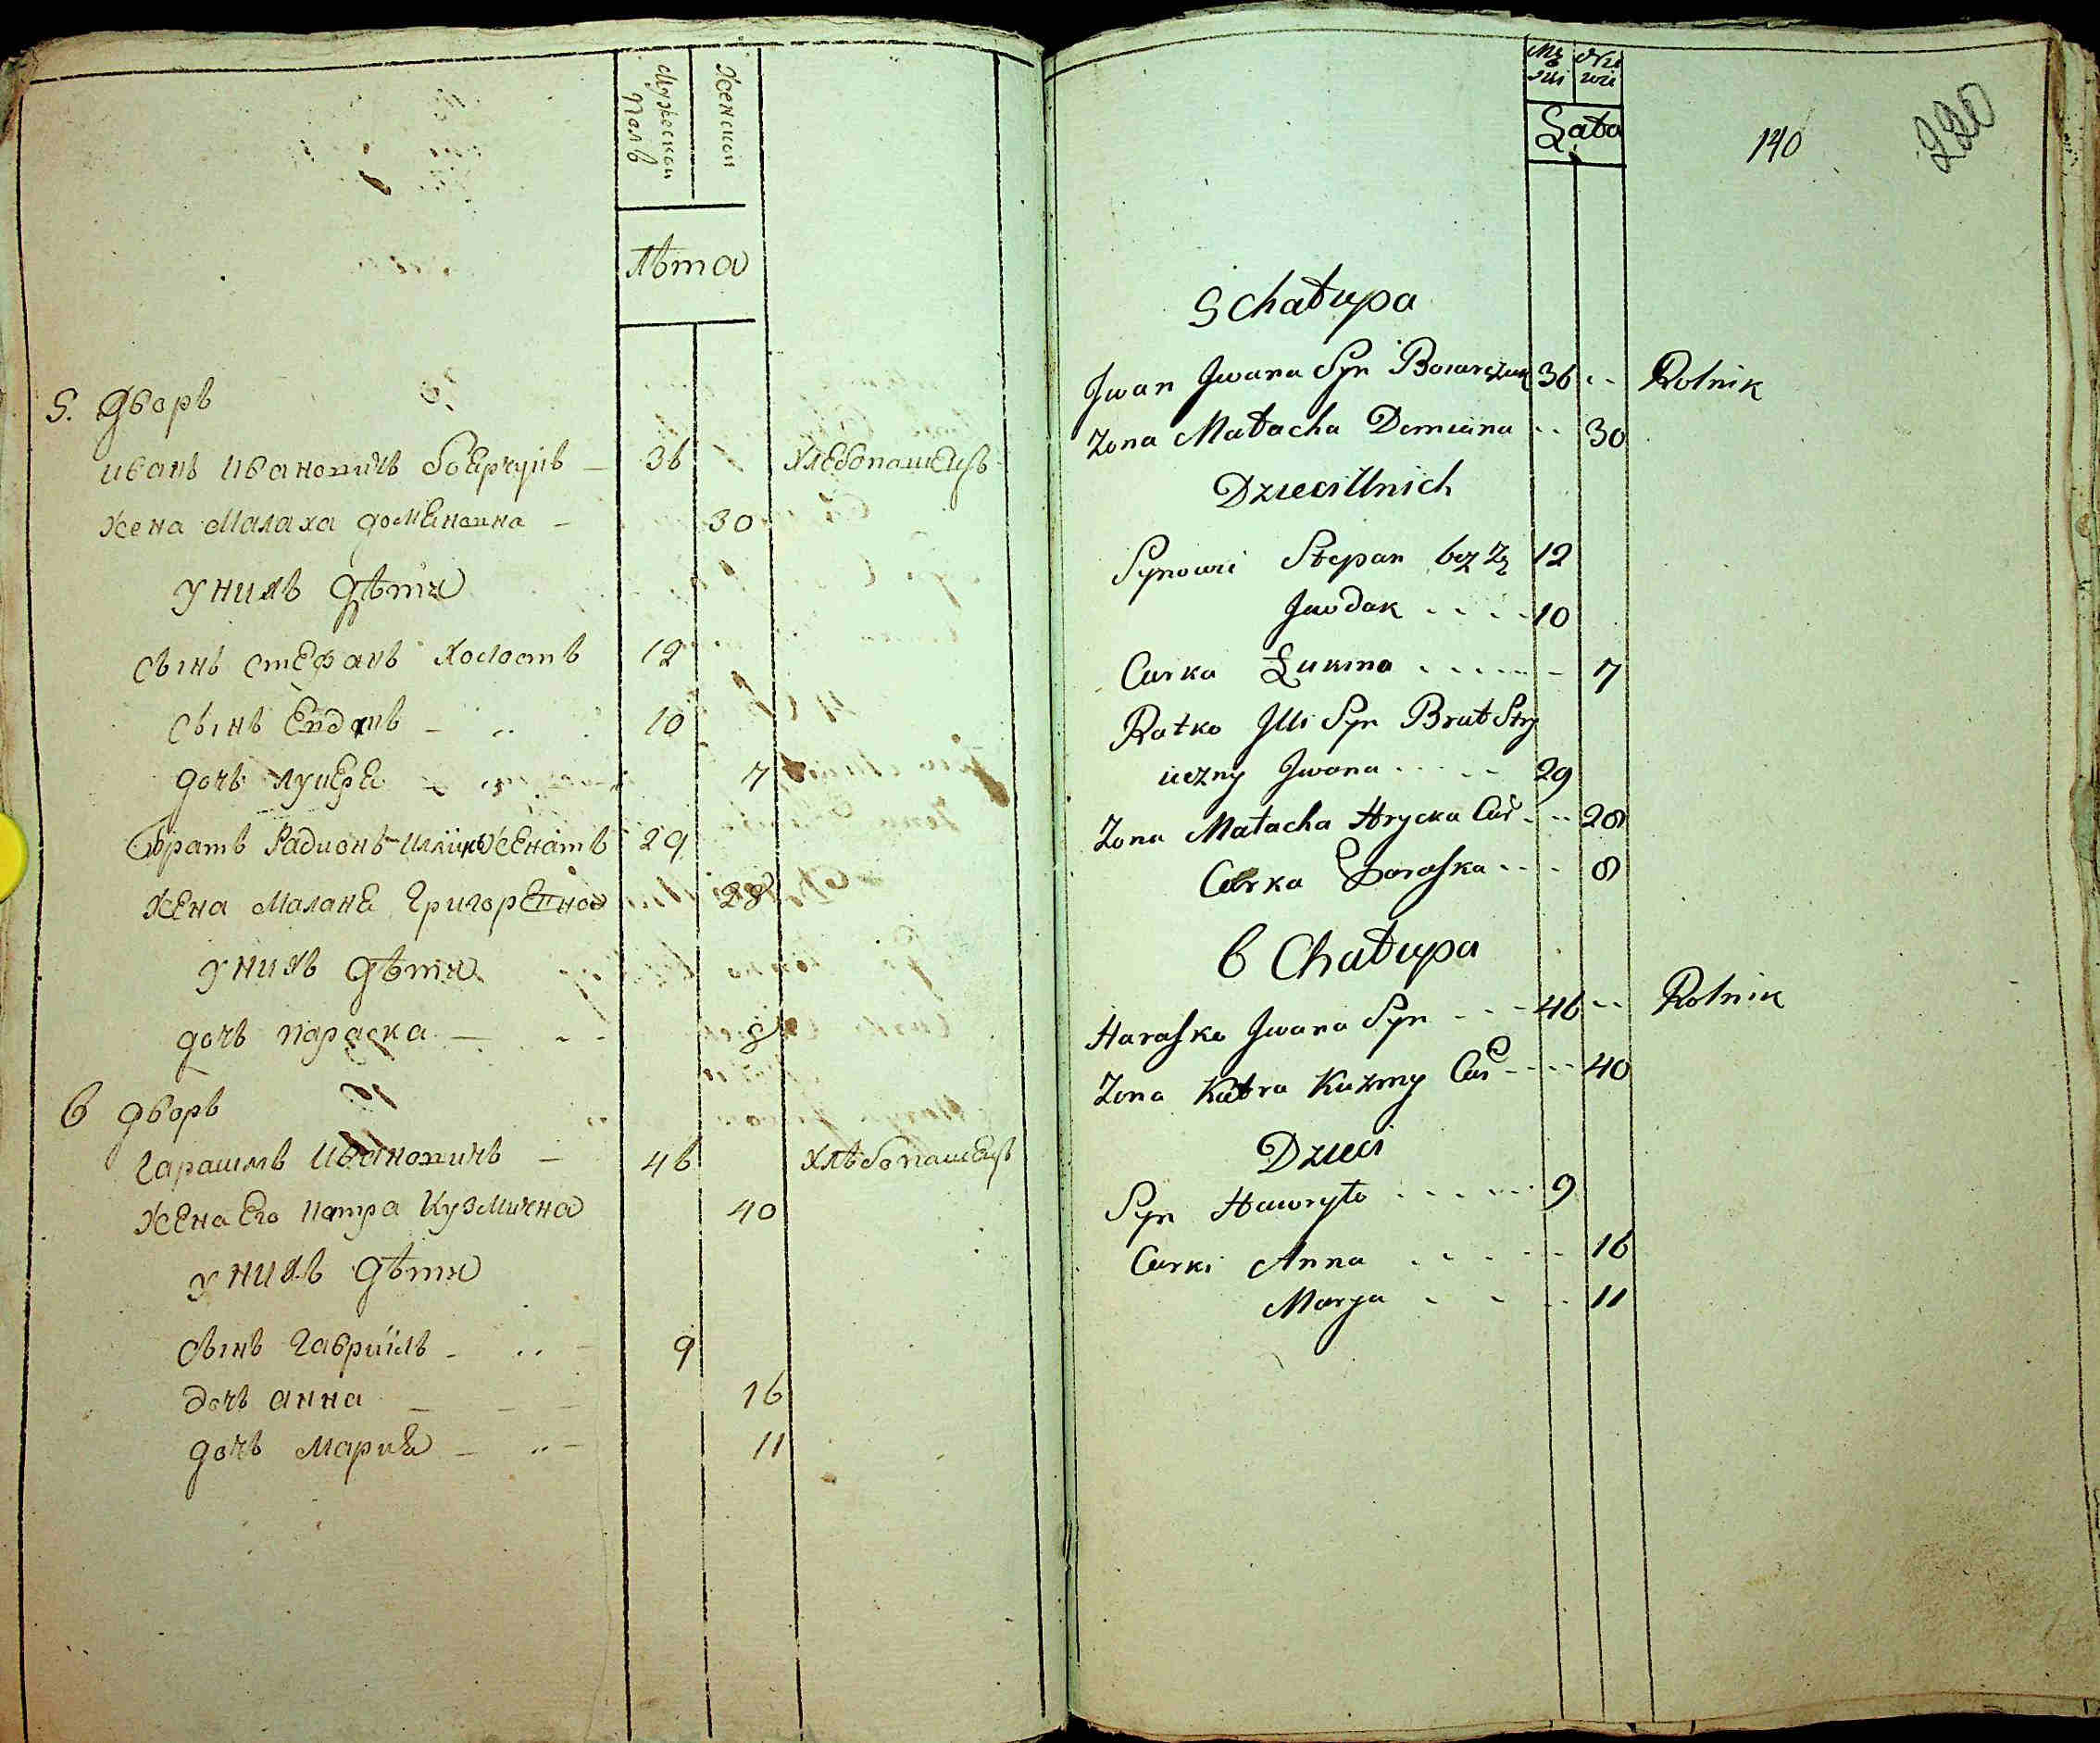 Мужескои
Полъ
Женскои
лѣта
5. дворъ
иванъ ивановичъ боярчукъ - 36 хлебопашецъ
жена Малаха доменовна - 30
у нихъ дѣти
сынъ стефанъ холостъ 12
сынъ - 10
дочъ - 7
братъ Радионъ женатъ 29
жена Маланя григоревна 28
у нихъ дѣти
дочъ параска - 8
6 дворъ
гарашимъ ивановичъ - 46 хлѣбопашецъ
жена его катра кузмична 40
у нихъ дѣти
сынъ гаврыилъ - 9
дочъ анна 16
дочъ мария - 11
Mę Nie
ski wie
Łata
140
220
5 Chałupa
Jwan Jwana Syn 36 Rolnik
Zona Małacha Demiana 30
Dzieci Unich
Synowie Stepan bez Zę 12
Jwodak 10
Curka 7
Ratko Jlli Syn Brat Stry
ieczny Jwana 29
Zona Małacha Hrycka Cur 28
Curka Paraska 8
6 Chałupa
Harasko Jwana Syn 46 Rolnik
Zona Katra Kuzmy Cur 40
Dzieci
Syn Hawryło 9
Curki Anna 16
Marya 11